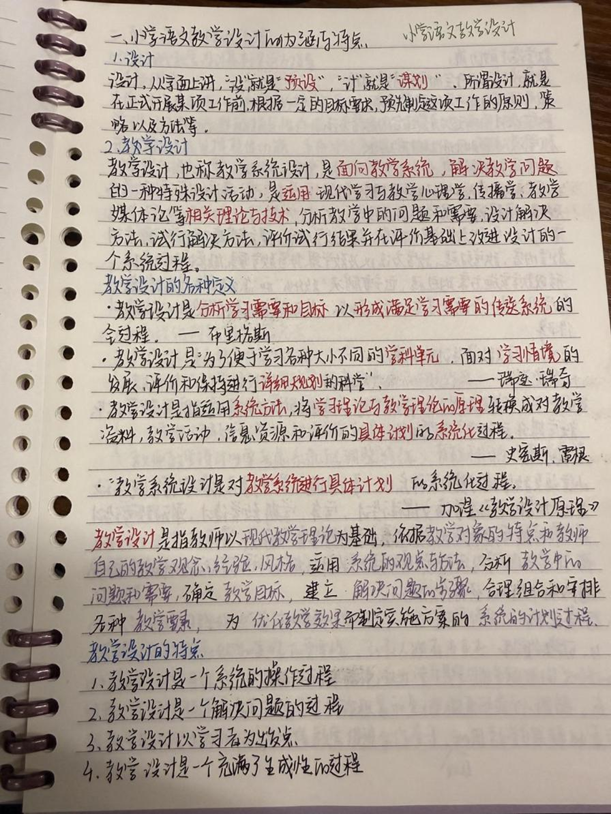 小学语文教学设计
一、小学语文教学设计的内涵与特点
1.设计
设计,从字面上讲,"设"就是"预设","计"就是"谋划"。所谓设计,就是
在正式开展某项工作前,根据一定的目标要求,预先制定这项工作的原则,策
略以及方法等。
2.教学设计
教学设计,也称教学系统设计,是面向教学系统,解决教学问题
的一种特殊设计活动,是运用现代学习与教学心理学,传播学,教学
媒体论等相关理论与技术,分析教学中的问题和需要,设计解决
方法,试行解决方法,评价试行结果并在评价基础上改进设计的一
个系统过程。
教学设计的各种定义
·教学设计是分析学习需要和目标以形成满足学习需要的传送系统的
全过程。 —— 布里格斯
·教学设计是"为了便于学习各种大小不同的学科单元,面对学习情境的
发展、评价和保持进行详细规划的科学"。 —— 瑞达·瑞奇
·教学设计是指运用系统方法,将学习理论与教学理论的原理转换成对教学
资料,教学活动,信息资源和评价的具体计划的系统化过程。
—— 史密斯、雷根
·"教学系统设计是对教学系统进行具体计划的系统化过程。
—— 加涅《教学设计原理》
教学设计是指教师以现代教学理论为基础,依据教学对象的特点和教师
自己的教学观念、经验、风格,运用系统的观点与方法,分析教学中的
问题和需要,确定教学目标,建立解决问题的步骤,合理组合和安排
各种教学要素,为优化教学效果而制定实施方案的系统的计划过程.
教学设计的特点
1.教学设计是一个系统的操作过程
2.教学设计是一个解决问题的过程
3.教学设计以学习者为出发点
4.教学设计是一个充满了生成性的过程